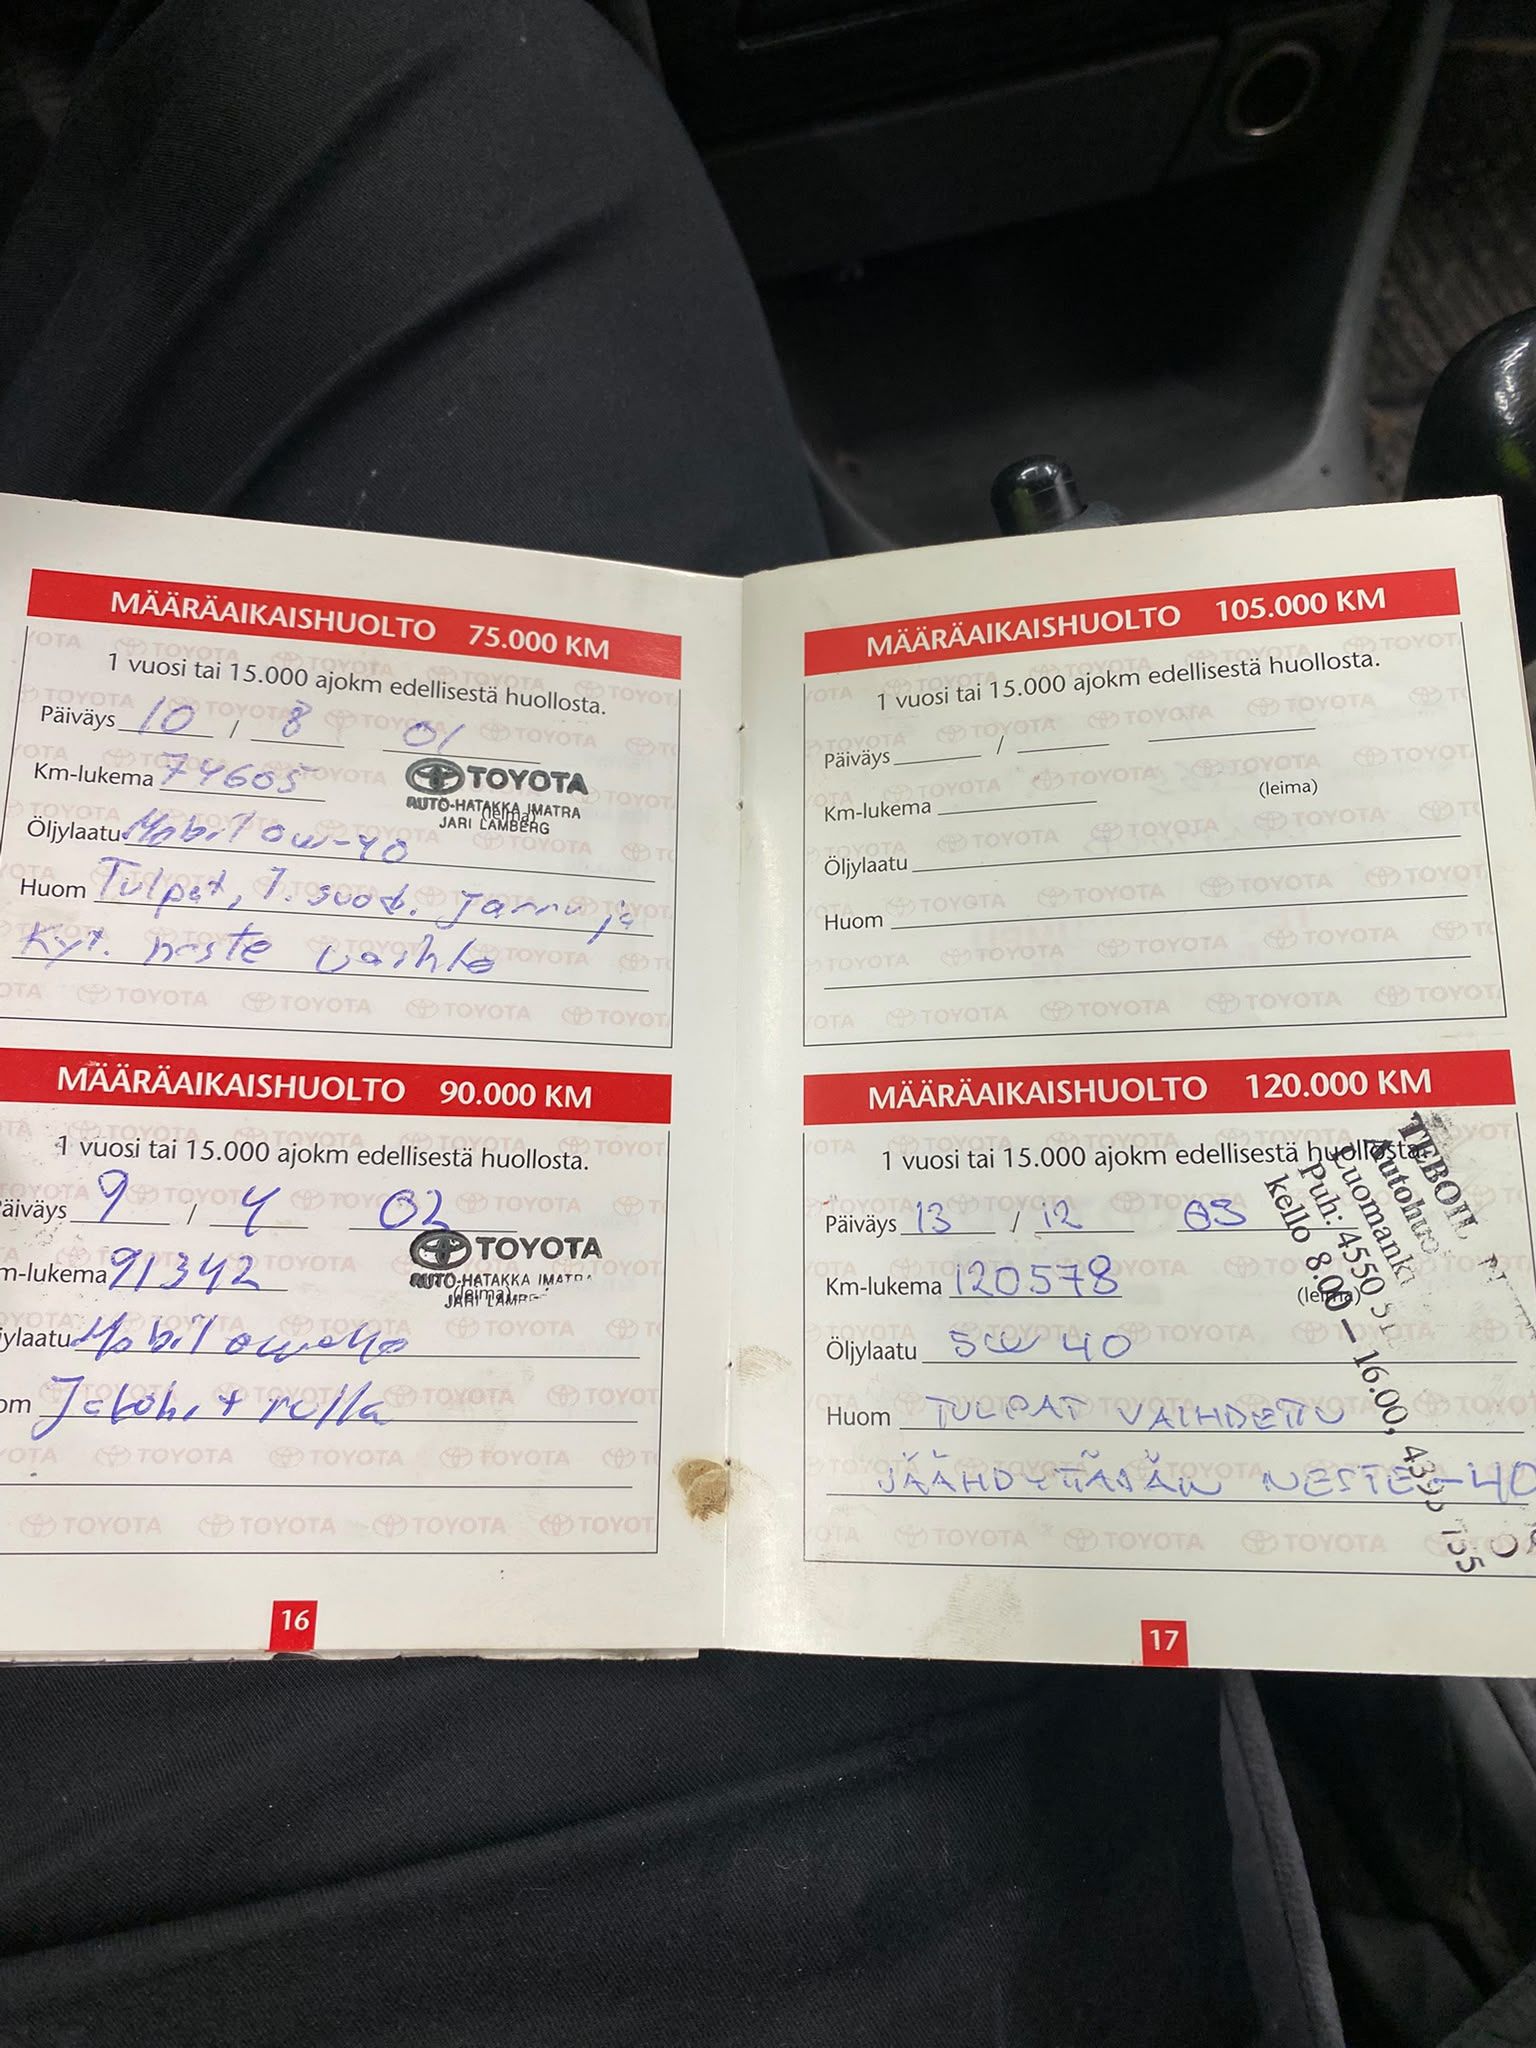 MÄÄRÄAIKAISHUOLTO 75.000 KM
1 vuosi tai 15.000 ajokm edellisestä huollosta.
Päiväys 10 / 8 01
Km-lukema 74605
TOYOTA
AUTO-HATAKKA IMATRA
(leima)
JARI LAMBERG
Öljylaatu Mobil 0W-40
Huom Tulpat, I. suod. Jarru ja
Kyt. neste vaihto
MÄÄRÄAIKAISHUOLTO 90.000 KM
1 vuosi tai 15.000 ajokm edellisestä huollosta.
äiväys 9 / 4 02
m-lukema 91342
TOYOTA
AUTO-HATAKKA IMATRA
(leima)
JARI LAMBE
jylaatu Mobil 0W-40
om
16
MÄÄRÄAIKAISHUOLTO 105.000 KM
1 vuosi tai 15.000 ajokm edellisestä huollosta.
Päiväys / 
Km-lukema
(leima)
Öljylaatu
Huom
MÄÄRÄAIKAISHUOLTO 120.000 KM
1 vuosi tai 15.000 ajokm edellisestä huollosta.
Päiväys 13 / 12 03
Km-lukema 120578
(leima)
Öljylaatu 5W 40
Huom TULPAT VAIHDETTU
JÄÄHDYTTÄJÄN NESTE -40
TEBOIL
Autohuo
Luomanki
Puh: 4550
kello 8.00 – 16.00,
17